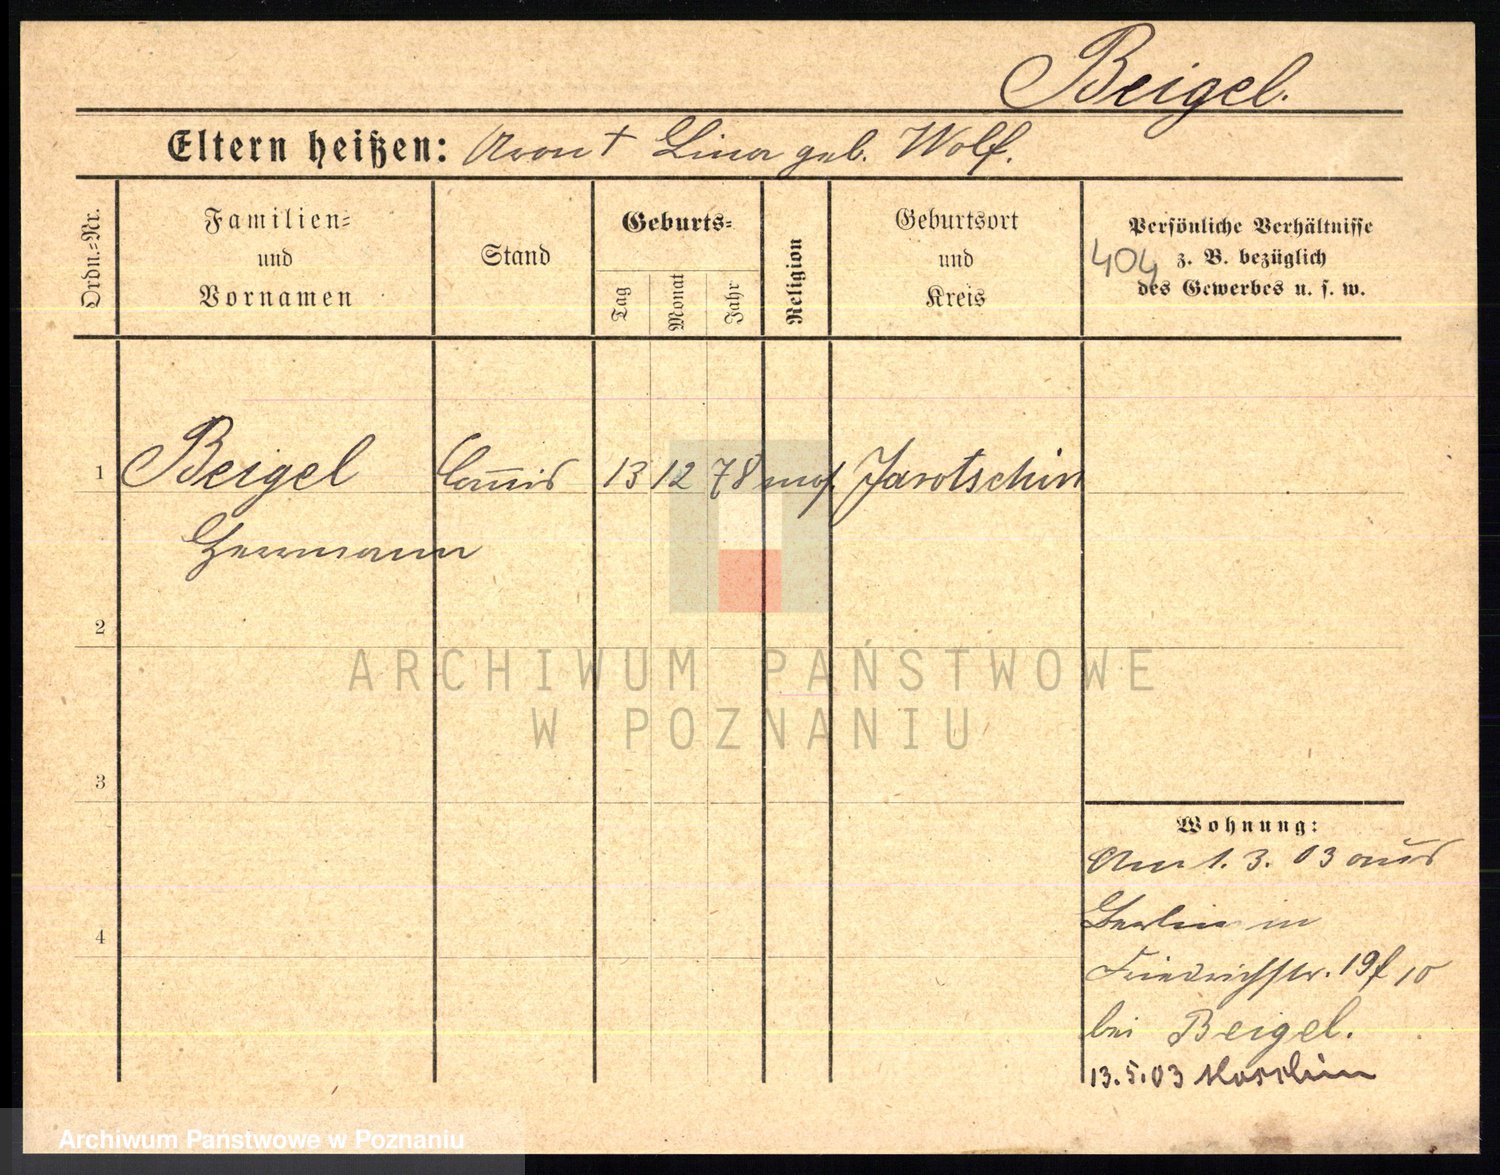 Beigel.
Eltern heißen: Aron † Lina geb. Wolf.
Ordn.=Nr.
Familien= und Vornamen
Stand
Geburts=
Tag
Monat
Jahr
Religion
Geburtsort und Kreis
Persönliche Verhältnisse
z. B. bezüglich
des Gewerbes u. s. w.
404
1 Beigel Commis 13 12 78 mos. Jarotschin
Herrmann
2
3
4
ARCHIWUM PAŃSTWOWE
W POZNANIU
Wohnung:
Am 1. 3. 03 aus
Berlin in
Friedrichstr. 19
bei Beigel.
13.5.03 Moschin
Archiwum Panstwowe w Poznaniu